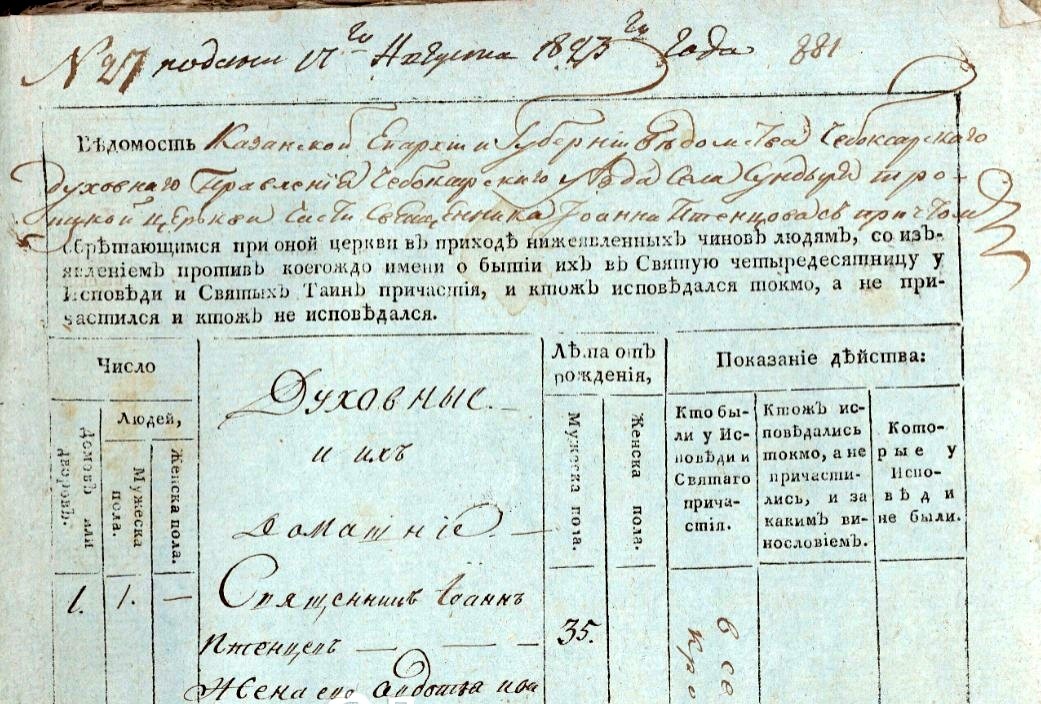 N 27 подана 17го Августа 1823го года 881
Вѣдомость Казанской Епархіи и Губерніи вѣдомства Чебоксарскаго
духовнаго Правленія Чебоксарскаго уѣзда села Сундыря Тро-
ицкой церкви части Священника Іоанна Птенцова съ причтом
обрѣтающимся при оной церкви въ приходѣ нижеявленныхъ чиновъ людямъ, со изъ-
явленіемъ противъ коегождо имени о бытіи ихъ въ Святую четыредесятницу у
Исповѣди и Святыхъ Таинъ причастія, и ктожъ исповѣдался токмо, а не при-
частился и ктожъ не исповѣдался.
Число
Домовъ или дворовъ.
Людей,
Мужеска пола.
Женска пола.
Духовные
и ихъ
домашніе.
Лѣта отъ
рожденія,
Мужеска пола.
Женска пола.
Показаніе дѣйства:
Кто бы-
ли у Ис-
повѣди и
Святаго
прича-
стія.
Ктожъ ис-
повѣдались
токмо, а не
причасти-
лись, и за
какимъ ви-
нословіемъ.
Кото-
рые у
Испо-
вѣди
не были.
1. 1. — Священникъ Іоаннъ
Птенцевъ — — — 35.
Жена его
все
кро